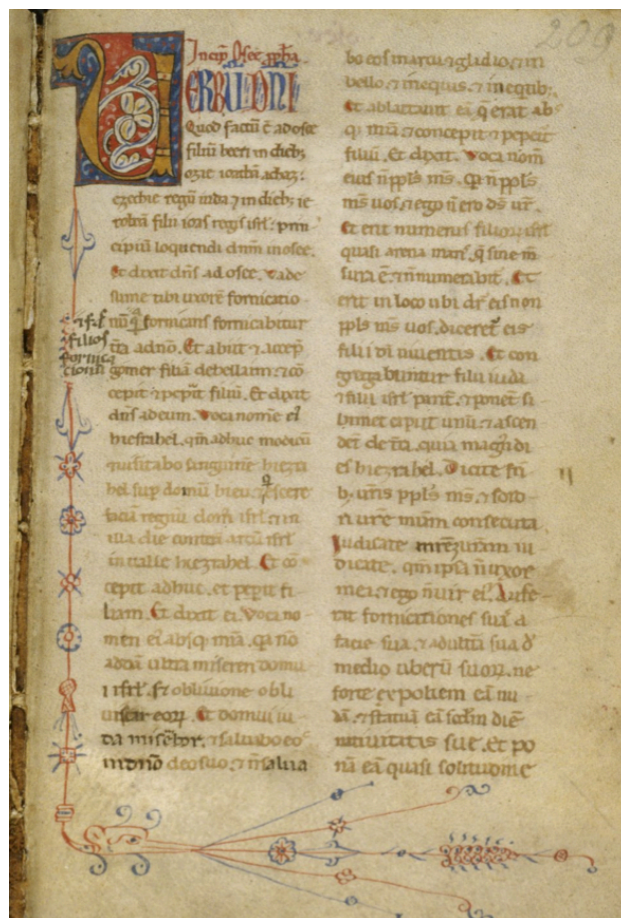 200
Incip̄ Osee ꝓph̄a
VERBŪ DNI
Quod factū ē ad osee
filiū beeri in dieb;
ozie ioathā achaz:
ezechie regū iuda ⁊ in dieb; ie
roboā filii ioas regis isrl̄: prin
cipiū loquendi dn̄m in osee.
Et dixit dn̄s ad osee. vade
sume tibi uxorē fornicatio
nū q̄ fornicans fornicabitur
t̄ra a dn̄o. Et abiit ⁊ accep̄
gomer filiā debelaim ⁊ cō
cepit ⁊ pep̄it filiū. Et dixit
dn̄s ad eum. voca nomē ei᷒
hiezrahel. qm̄ adhuc modicū
⁊ uisitabo sanguinē hiezra
hel sup̄ domū hieu ⁊ q̄escere
faciā regnū dom᷒ isrl̄ ⁊ in
illa die conterā arcū isrl̄
in ualle hiezrahel. Et cō
cepit adhuc. et pep̄it fi
liam. Et dixit ei. voca no
men ei᷒ absq; mīa. q̄a nō
addā ultra misereri domu
i isrl̄. s̄ obliuione obli
uiscar eoꝝ. Et domui iu
da miserebor. ⁊ saluabo eos
in dn̄o deo suo. ⁊ n̄ salua
⁊ f̄r
filios
fornica
tionū
bo eos in arcu ⁊ gladio. ⁊ in
bello. ⁊ in equis. ⁊ in equitib;.
Et ablactauit eā q̄ erat abs
q; mīa ⁊ concepit ⁊ pepit
filiū. Et dixit. voca nom̄
eius n̄ ppl̄s ms̄. Q̄a n̄ ppl̄s
ms̄ uos. ⁊ ego n̄ ero ds̄ ur̄.
Et erit numerus filioꝝ isrl̄
quasi arena mar᷒. q̄ sine m̄
sura ē. ⁊ n̄ numerabit᷑. Et
erit in loco ubi dr̄ eis non
ppl̄s ms̄ uos. dicet᷑ eis
filii dī uiuentis. Et con
gregabuntur filii iuda
⁊ filii isrl̄ parit̄. ⁊ ponēt si
bimet capud unū ⁊ ascen
dēt de t̄ra. quia magn᷒ di
es hiezrahel. Dicite fr̄i
b; ur̄is ppl̄s ms̄. ⁊ soro
ri ur̄e mīam consecuta
Iudicate mr̄em ur̄am iu
dicate. qm̄ ipsa n̄ uxor
mea. ⁊ ego n̄ uir ei᷒. Aufe
rat fornicationes suas a
facie sua. ⁊ adulteria sua d̄
medio uberū suoꝝ. ne
forte expoliem eā nu
dā. ⁊ statuā eā scd̄m diē
natiuitatis sue. Et po
nā eā quasi solitudinē